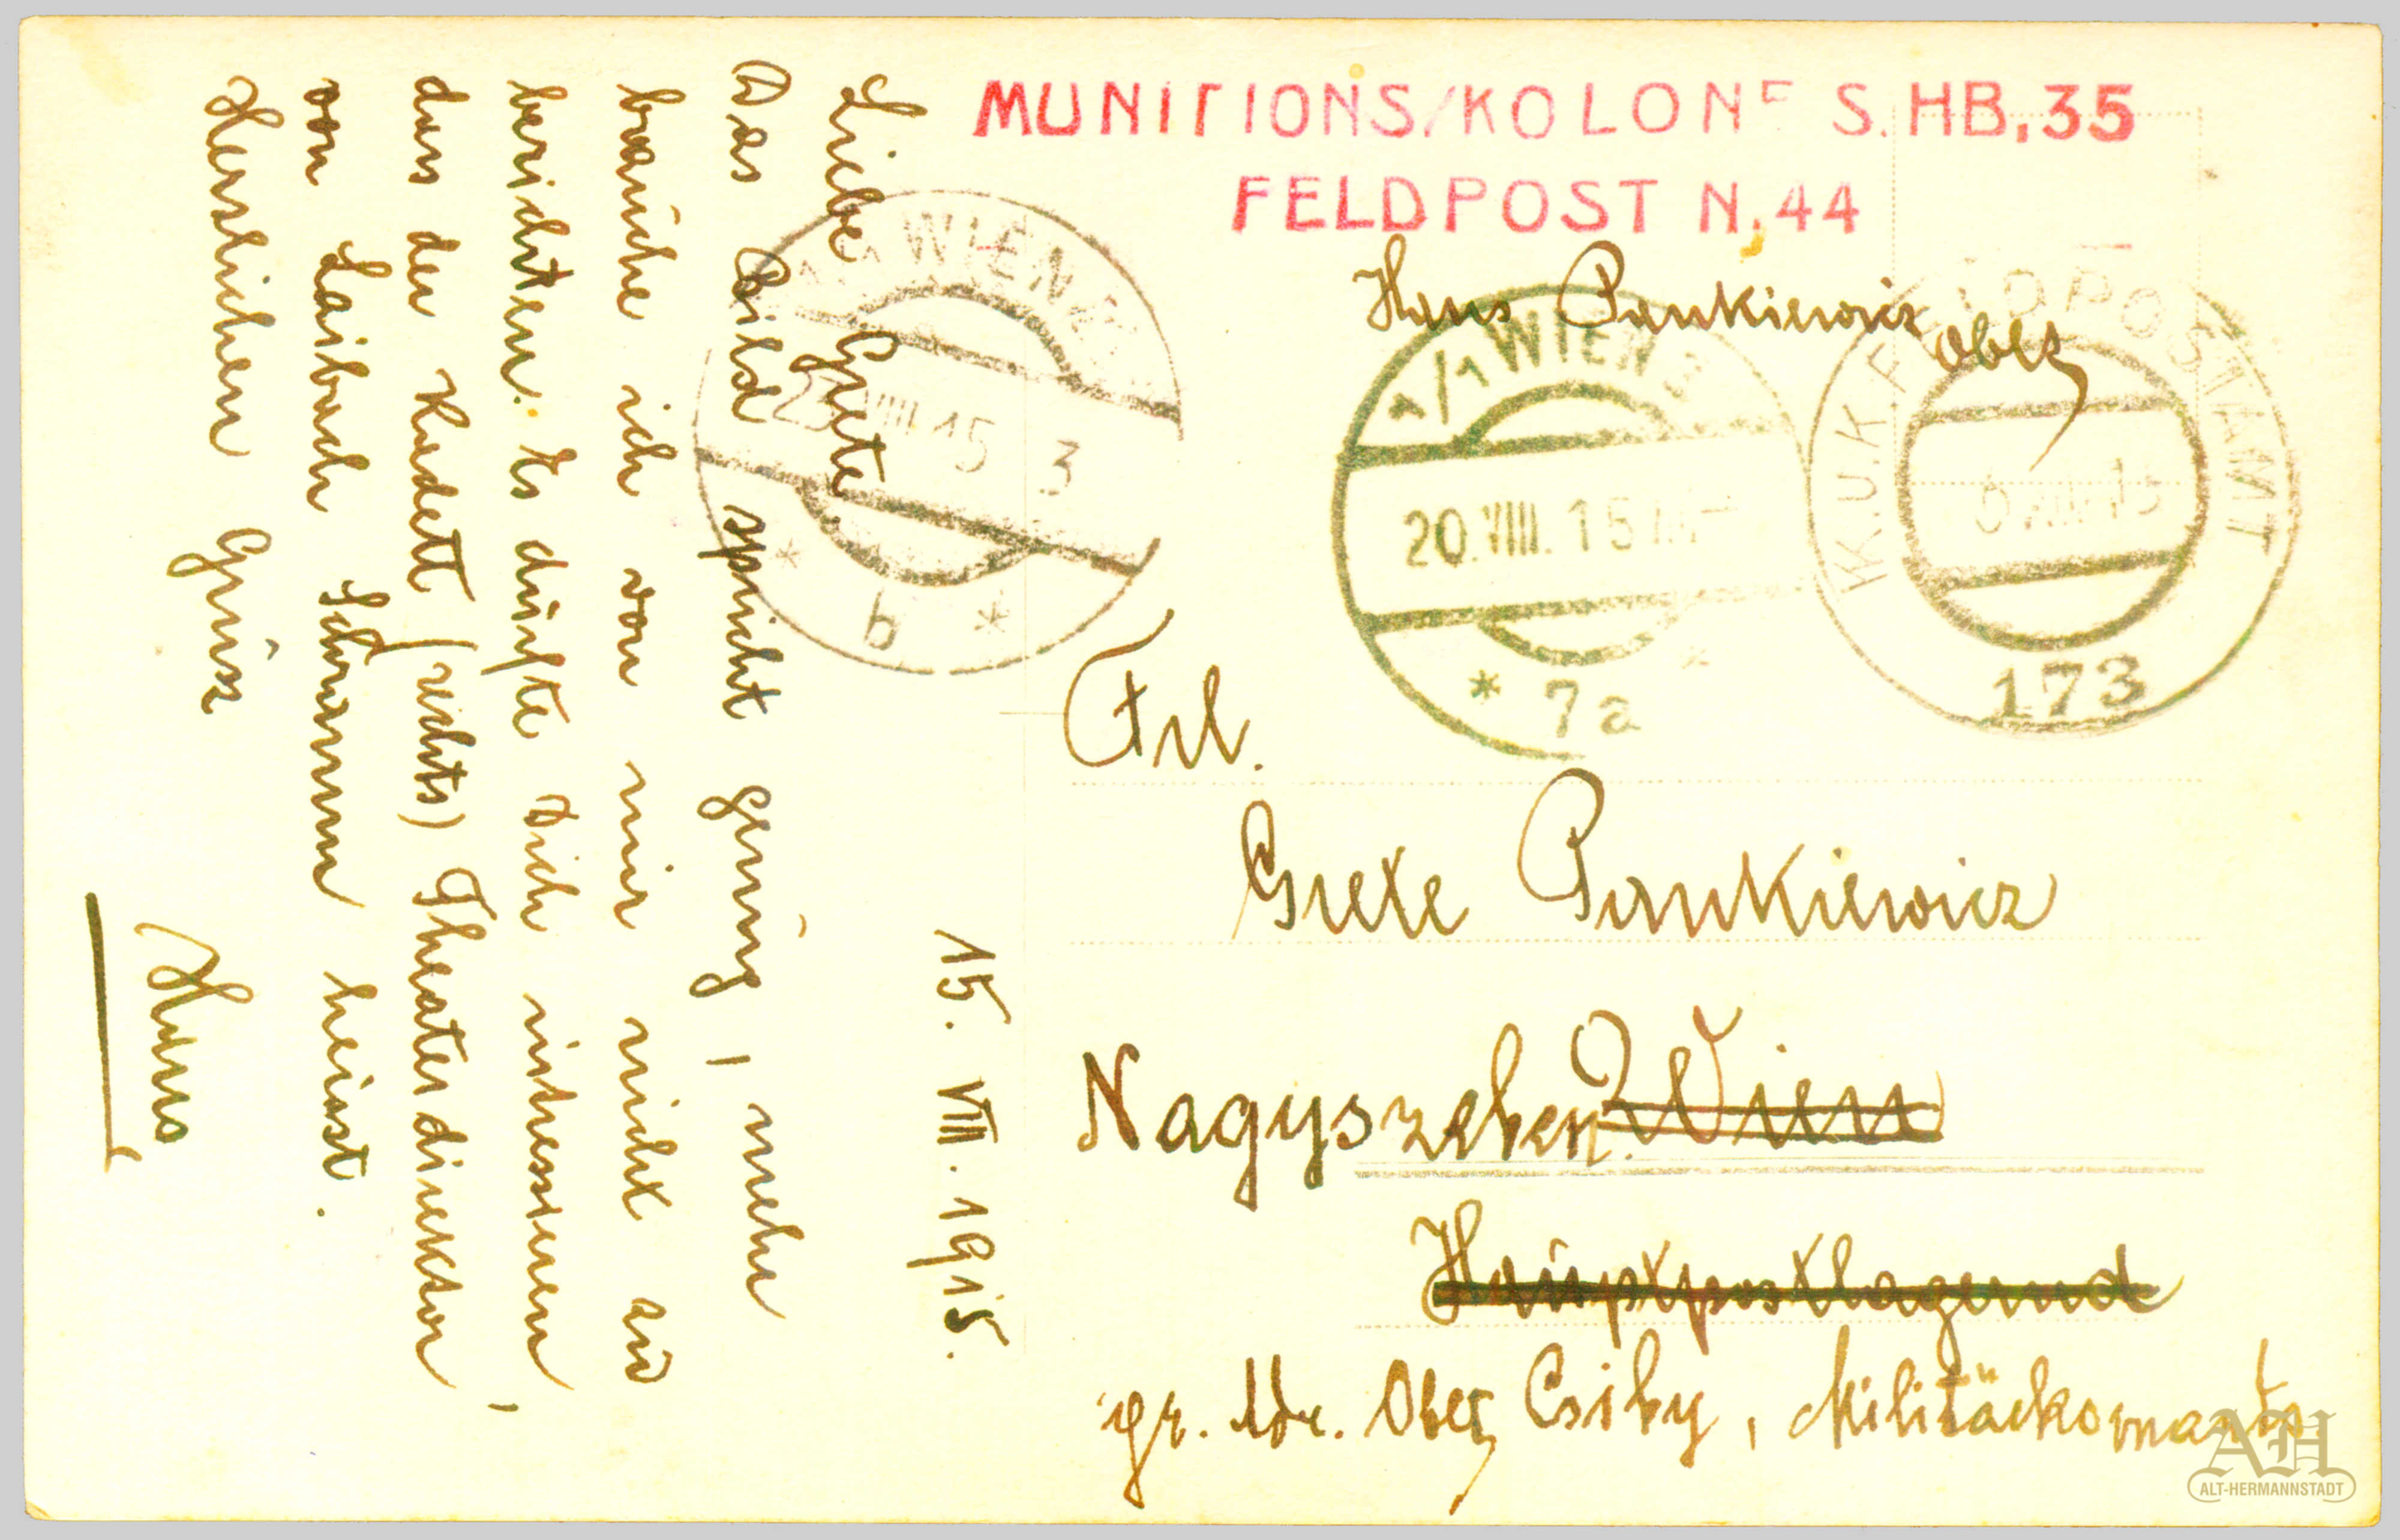 MUNITIONS/KOLONE S.HB,35
FELDPOST N.44
Hans Pankiewicz Oblt
WIEN
VIII 15 3
* b *
1/1 WIEN
20.VIII.15
* 7a *
K.U.K. FELDPOSTAMT
173
15. VIII. 1915.
Liebe Grete,
Das Bild spricht genug, mehr
brauche ich von mir nicht zu
berichten. Es dürfte Dich interessieren,
dass der Kadett (rechts) Theaterdirektor
von Laibach heisst.
Herzlichen Gruss
Hans
Frl.
Grete Pankiewicz
Nagyszeben. Wien
Hauptpostlagernd
Adr. Csiby, Militärkomando
AH
ALT-HERMANNSTADT